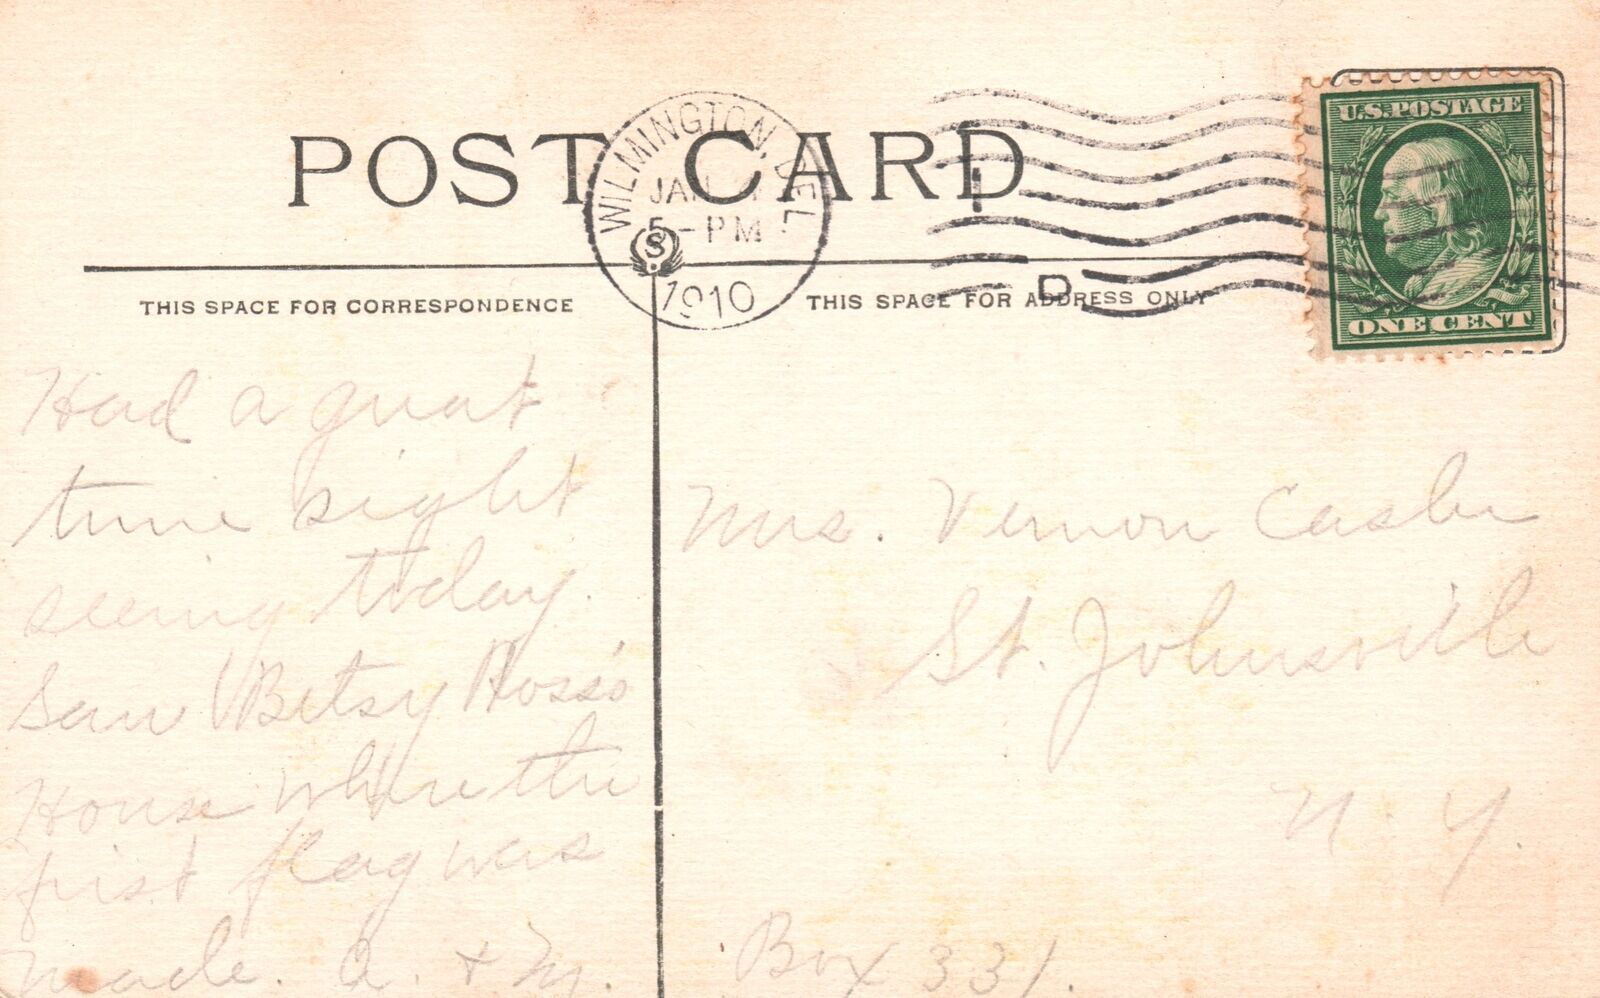 POST CARD
WILMINGTON, DEL.
JAN
5 - PM
1910
U.S. POSTAGE
ONE CENT
S
D
THIS SPACE FOR CORRESPONDENCE
THIS SPACE FOR ADDRESS ONLY
Had a great
time sight
seeing today.
Saw Betsy Ross's
House where the
first flag was
made. A. + M.
Mrs. Vernon Casler
St. Johnsville
N. Y.
Box 331.